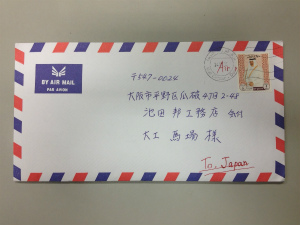 BY AIR MAIL
PAR AVION
〒547-0024
大阪市平野区瓜破4丁目2-48
池田邦工務店 気付
大工 馬場 様
To. Japan